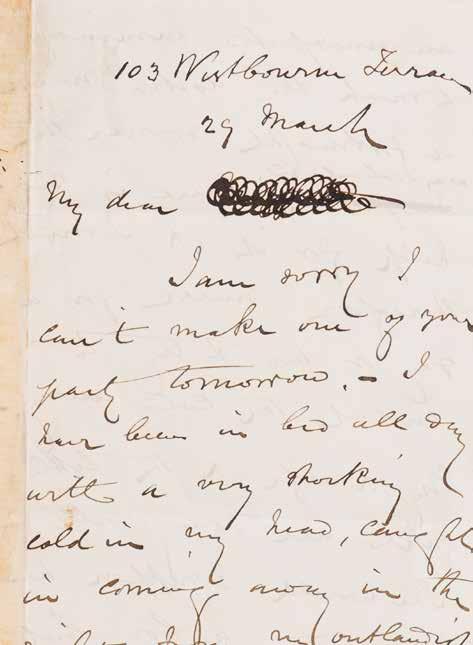 103 Westbourne Terrace
29 March
My dear
I am sorry I
can't make one of your
party tomorrow. – I
have been in bed all day
with a very shocking
cold in my head, caught
in coming away in the
my outlandish